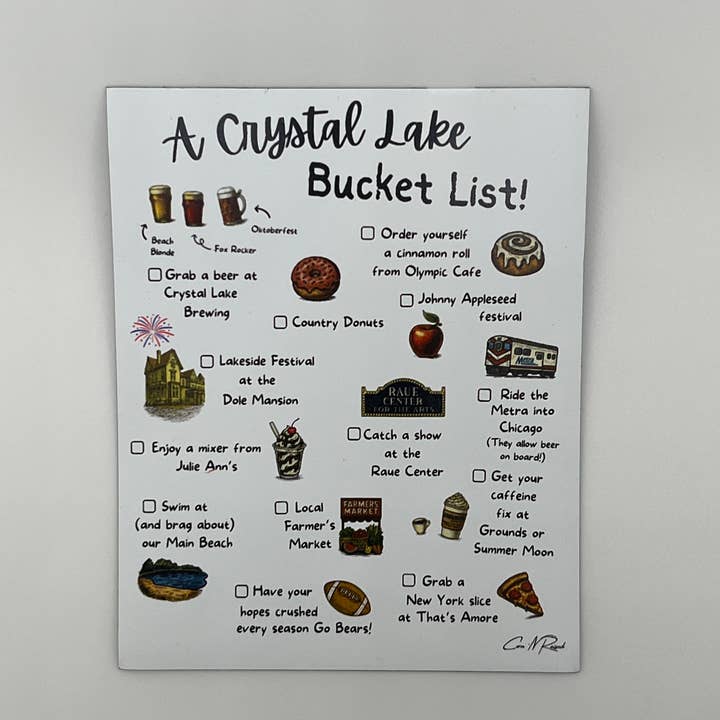 A Crystal Lake
Bucket List!
Beach
Blonde
Fox Rocker
Oktoberfest
Grab a beer at
Crystal Lake
Brewing
Order yourself
a cinnamon roll
from Olympic Cafe
Country Donuts
Johnny Appleseed
festival
Lakeside Festival
at the
Dole Mansion
RAUE
CENTER
FOR THE ARTS
Catch a show
at the
Raue Center
Metra
Ride the
Metra into
Chicago
(They allow beer
on board!)
Enjoy a mixer from
Julie Ann's
Get your
caffeine
fix at
Grounds or
Summer Moon
Swim at
(and brag about)
our Main Beach
Local
Farmer's
Market
FARMERS
MARKET
Have your
hopes crushed
every season Go Bears!
Grab a
New York slice
at That's Amore